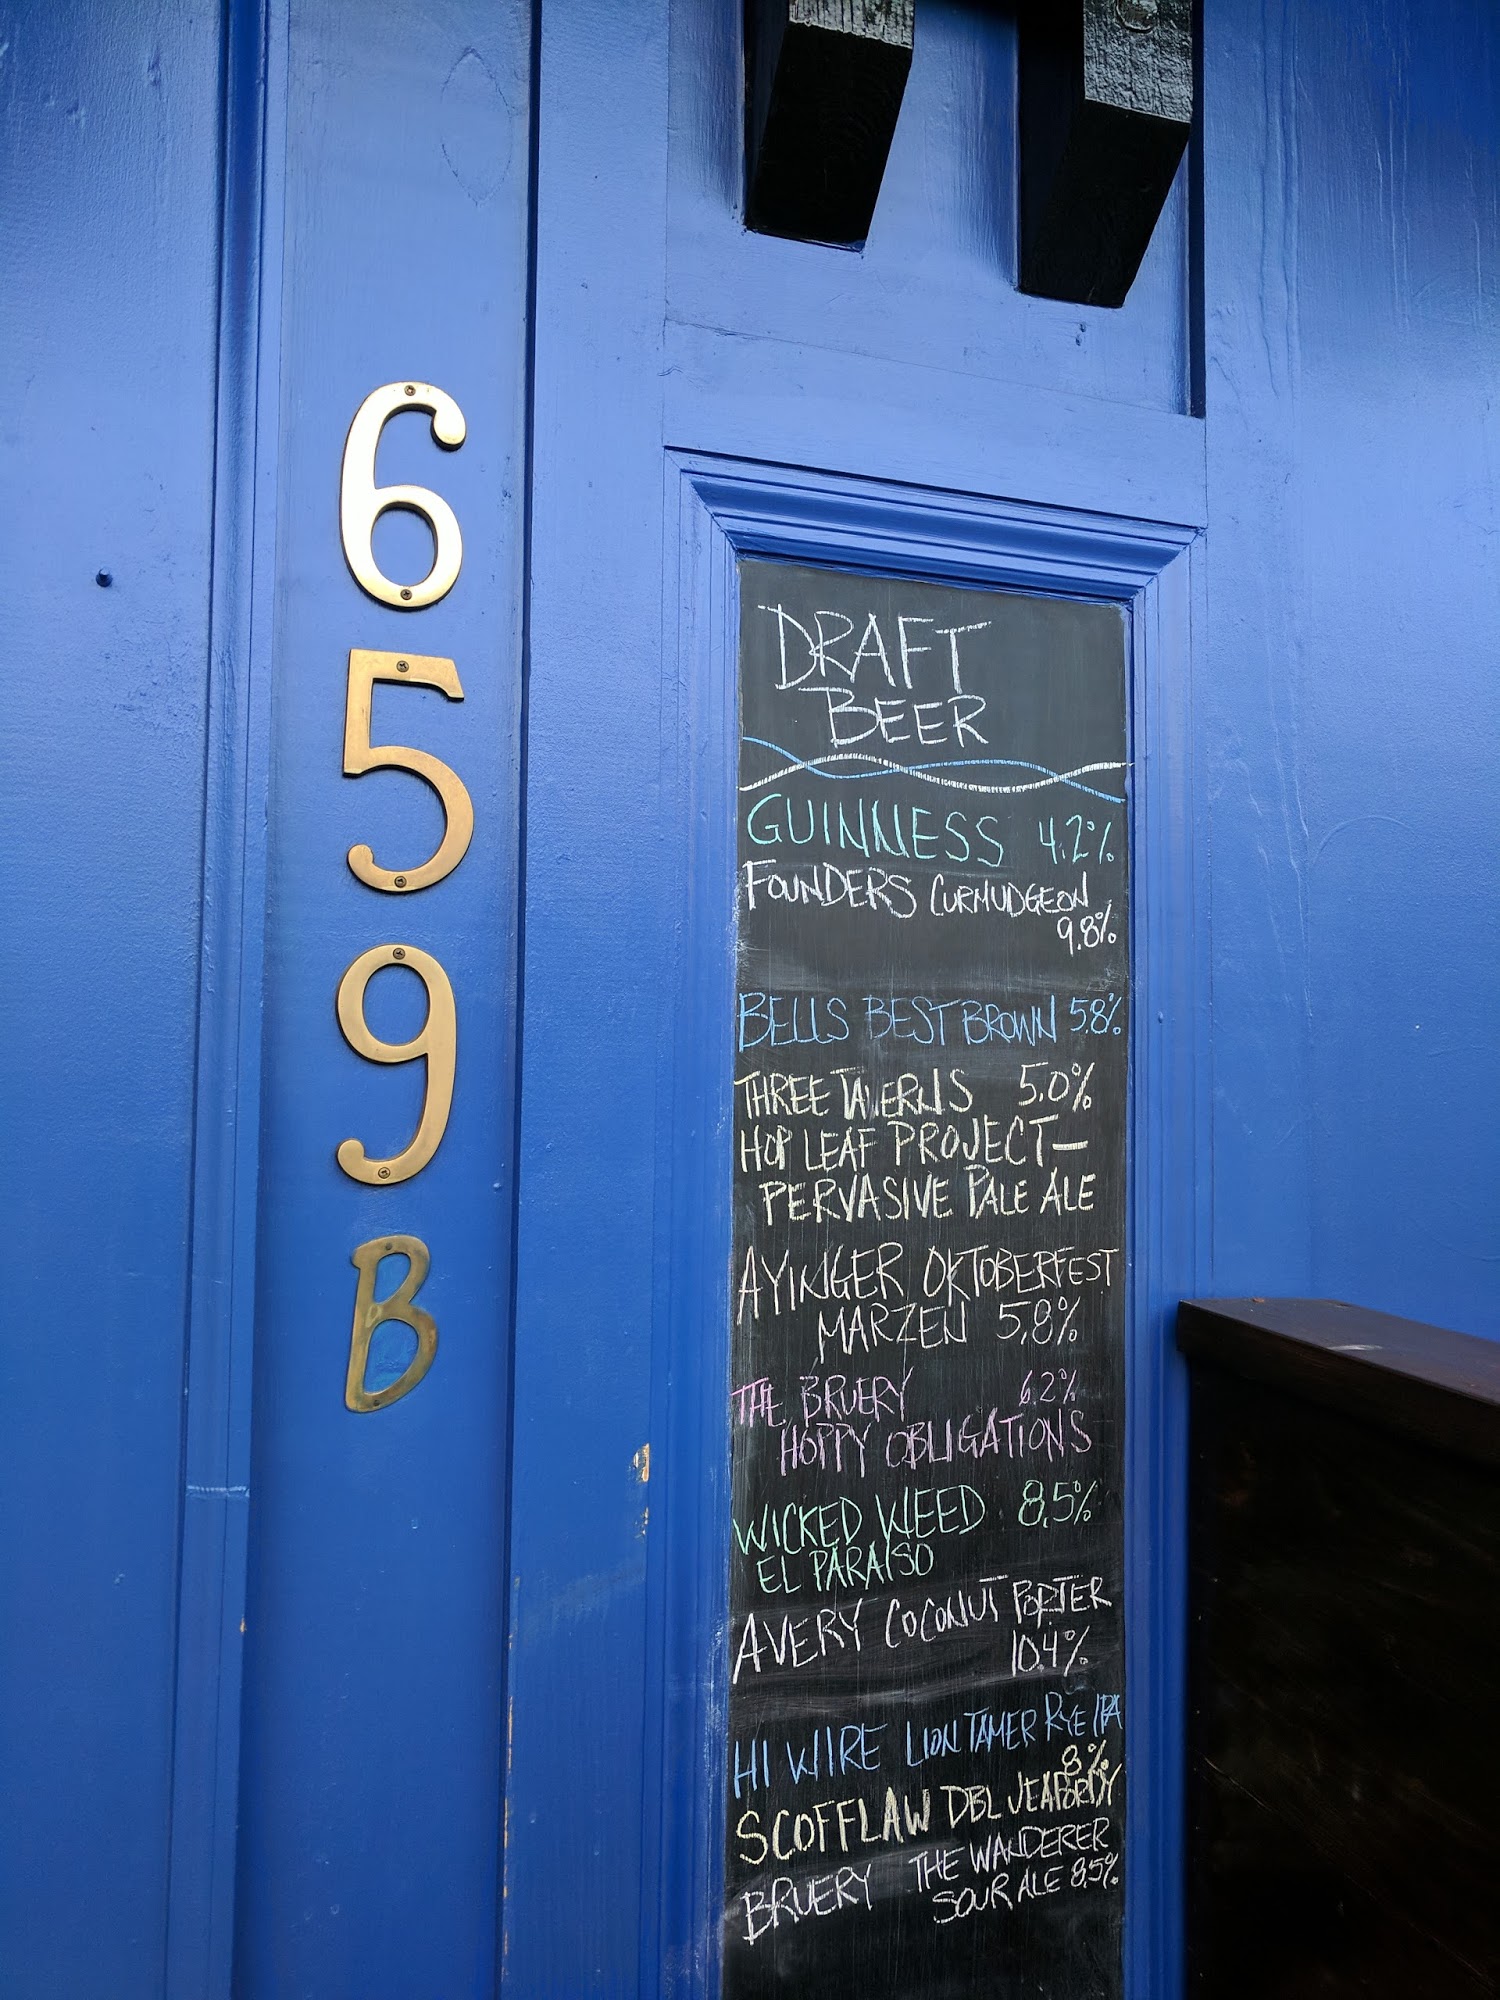 6
5
9
B
DRAFT
BEER
GUINNESS 4.2%
FOUNDERS CURMUDGEON
9.8%
BELLS BEST BROWN 5.8%
THREE TAVERNS 5.0%
HOP LEAF PROJECT—
PERVASIVE PALE ALE
AYINGER OKTOBERFEST
MARZEN 5.8%
THE BRUERY 6.2%
HOPPY OBLIGATIONS
WICKED WEED 8.5%
EL PARAISO
AVERY COCONUT PORTER
10.4%
HI WIRE LION TAMER RYE IPA
8%
SCOFFLAW DBL JEAPORDY
BRUERY THE WANDERER
SOUR ALE 8.5%